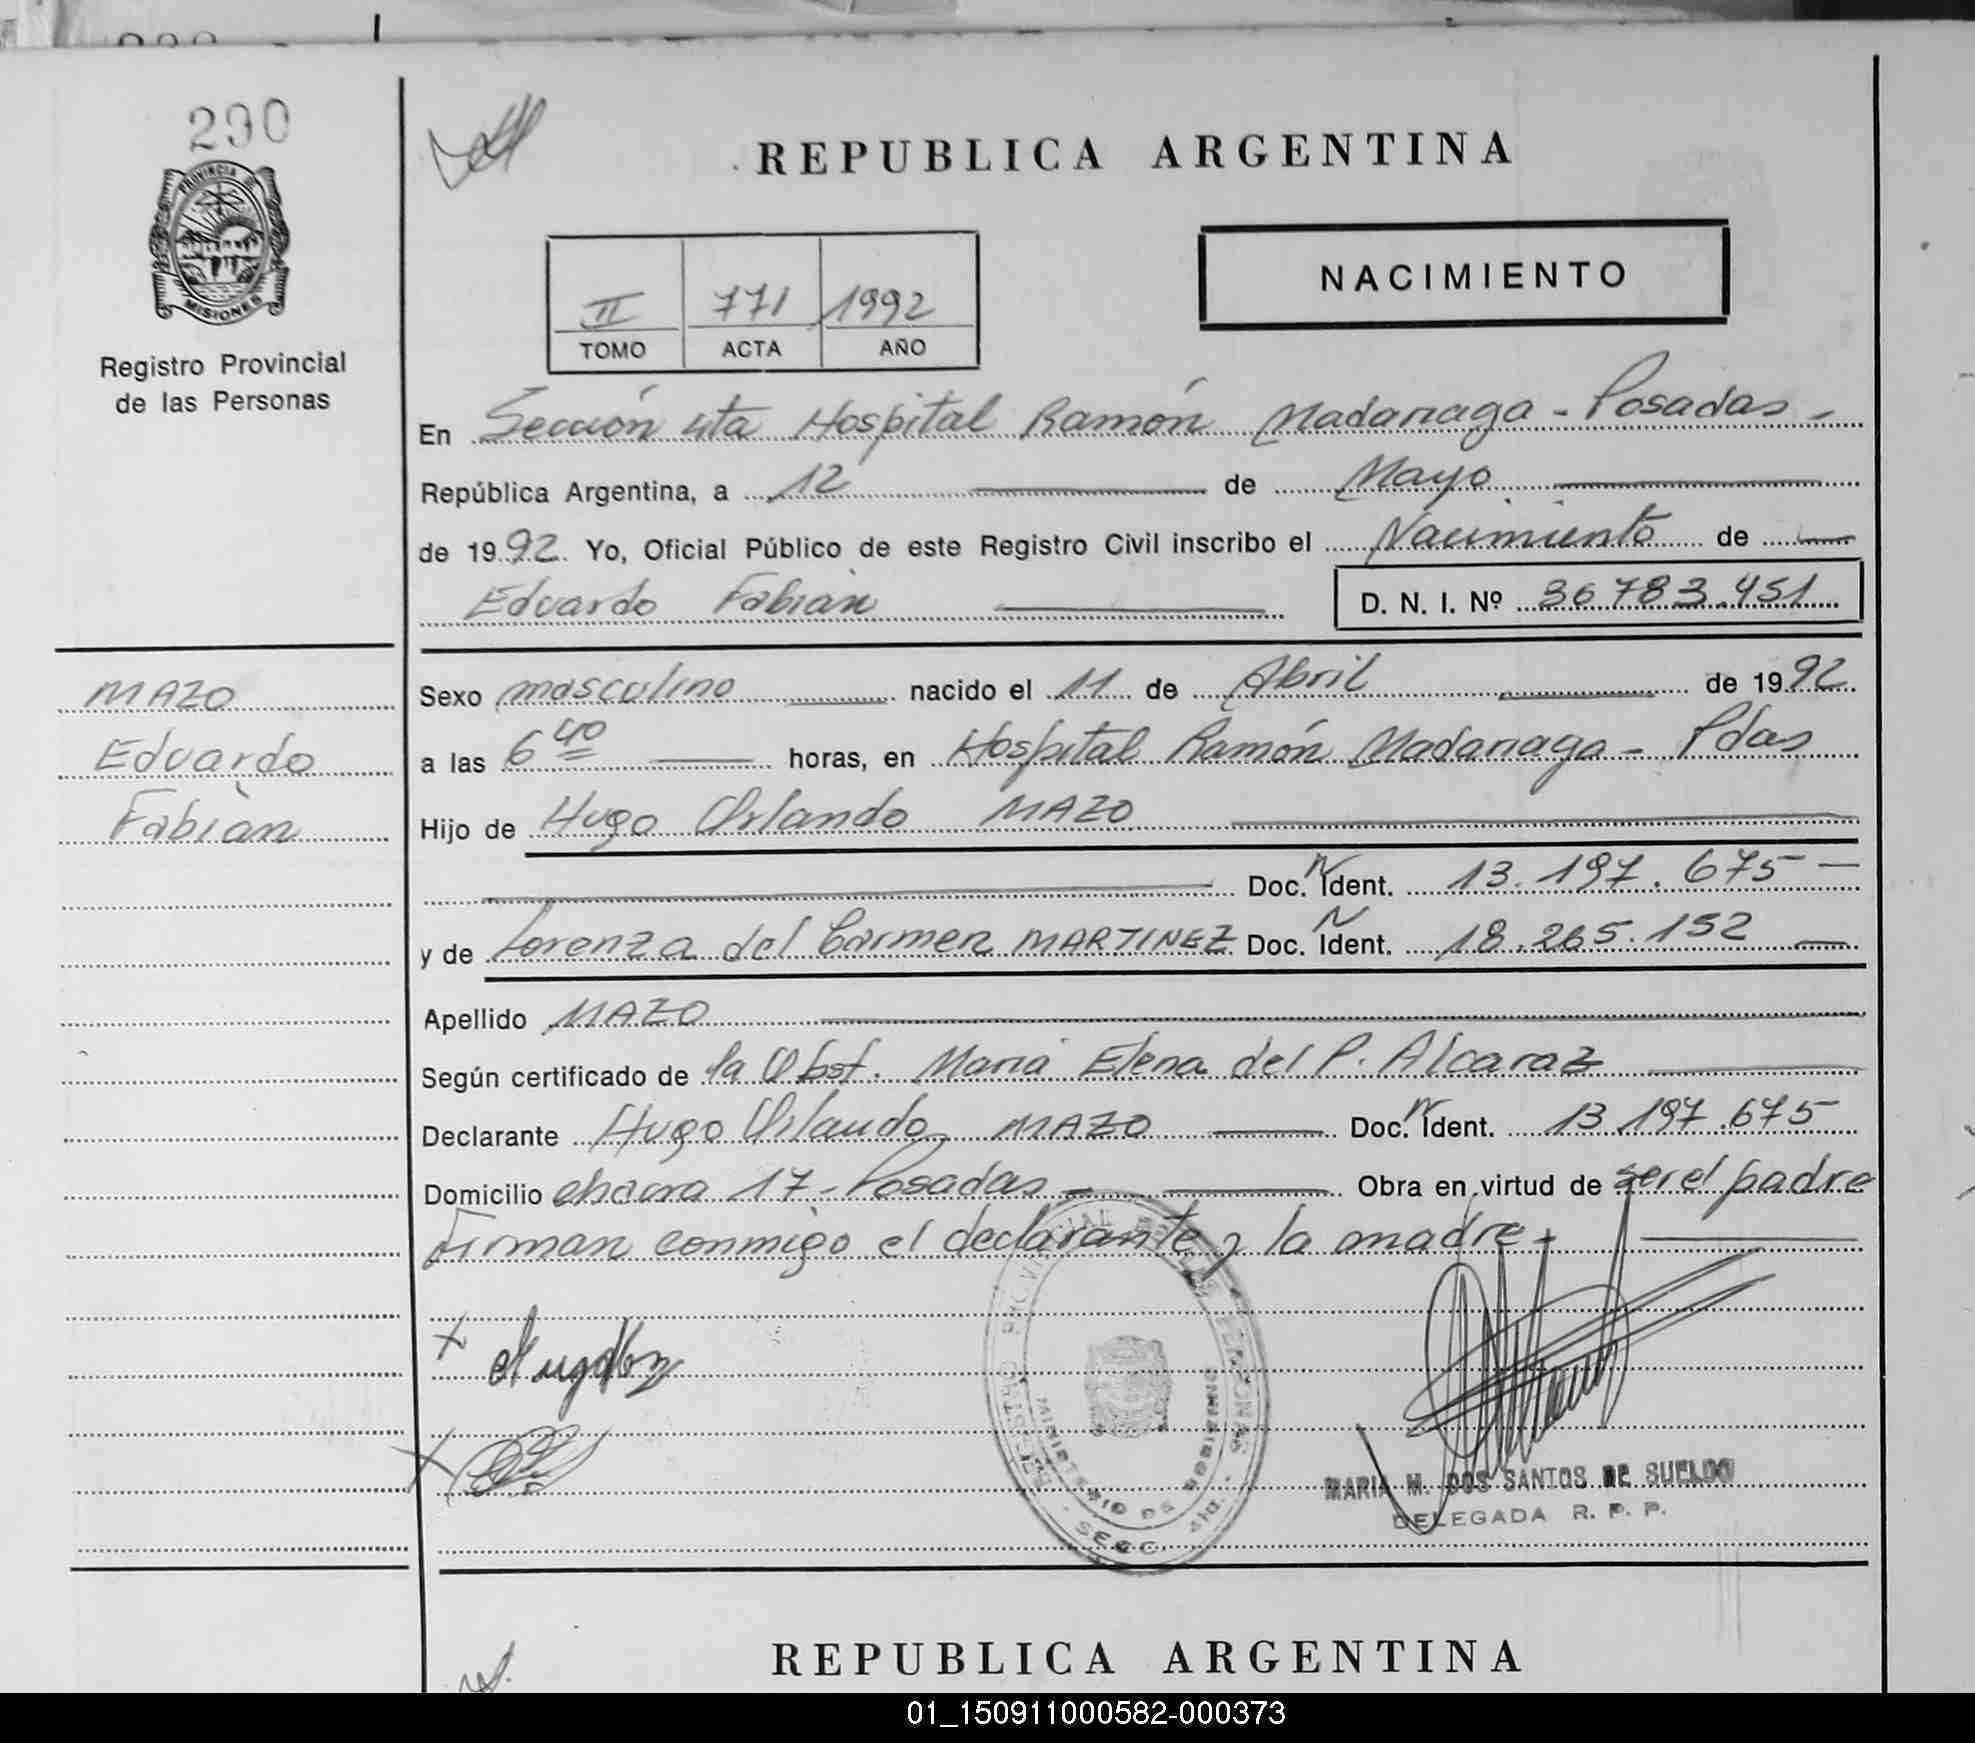 290
PROVINCIA DE
MISIONES
Registro Provincial
de las Personas
REPUBLICA ARGENTINA
II 771 1992
TOMO ACTA AÑO
NACIMIENTO
En Sección 4ta Hospital Ramón Madariaga - Posadas -
República Argentina, a 12 de Mayo
de 1992. Yo, Oficial Público de este Registro Civil inscribo el Nacimiento de
Eduardo Fabián D. N. I. Nº 36783.451
MAZO
Eduardo
Fabián
Sexo masculino nacido el 11 de Abril de 1992.
a las 6 40 horas, en Hospital Ramón Madariaga - Pdas
Hijo de Hugo Orlando MAZO
Doc. N Ident. 13.197.675 -
y de Lorenza del Carmen MARTINEZ Doc. N Ident. 18.265.152
Apellido MAZO
Según certificado de la Obst. María Elena del P. Alcaraz
Declarante Hugo Orlando MAZO Doc. N Ident. 13.197.675
Domicilio chacra 17 - Posadas - Obra en virtud de ser el padre
Firman conmigo el declarante y la madre -
REGISTRO PROVINCIAL DE LAS PERSONAS
MINISTERIO DE GOBIERNO
MARIA M. DOS SANTOS DE SUELDO
DELEGADA R. P. P.
REPUBLICA ARGENTINA
01_150911000582-000373